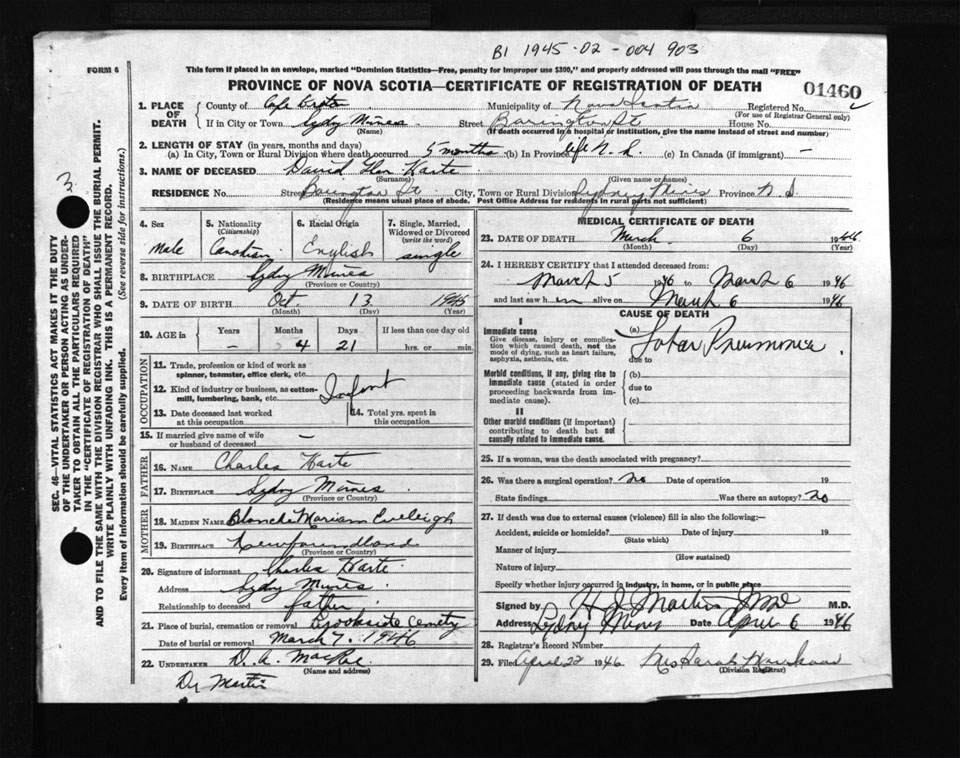 B1 1945-02-004903
FORM 6
This form if placed in an envelope, marked "Dominion Statistics—Free, penalty for improper use $300," and properly addressed will pass through the mail "FREE"
PROVINCE OF NOVA SCOTIA—CERTIFICATE OF REGISTRATION OF DEATH
01460
1. PLACE OF DEATH
County of Cape Breton Municipality of Nova Scotia Registered No.
(For use of Registrar General only)
If in City or Town Sydny Mines Street Barington St. House No.
(Name) (If death occurred in a hospital or institution, give the name instead of street and number)
2. LENGTH OF STAY (in years, months and days)
(a) In City, Town or Rural Division where death occurred 5 months (b) In Province life N. S. (c) In Canada (if immigrant) —
3. NAME OF DECEASED David Harte
(Surname) (Given name or names)
RESIDENCE No. Street Barington St City, Town or Rural Division Sydney Mines Province N S
(Residence means usual place of abode. Post Office Address for residents in rural parts not sufficient)
4. Sex
Male
5. Nationality
(Citizenship)
Canadian
6. Racial Origin
English
7. Single, Married, Widowed or Divorced
(write the word)
single
8. BIRTHPLACE Sydny Mines
(Province or Country)
9. DATE OF BIRTH Oct. 13 1945
(Month) (Day) (Year)
10. AGE in Years Months Days If less than one day old
— 4 21 hrs. or min.
OCCUPATION
11. Trade, profession or kind of work as spinner, teamster, office clerk, etc.
12. Kind of industry or business, as cotton-mill, lumbering, bank, etc. Infant
13. Date deceased last worked at this occupation
14. Total yrs. spent in this occupation
15. If married give name of wife or husband of deceased —
FATHER
16. NAME Charles Harte
17. BIRTHPLACE Sydny Mines
(Province or Country)
MOTHER
18. MAIDEN NAME Blanche Mariam Eveleigh
19. BIRTHPLACE Newfoundland
(Province or Country)
20. Signature of informant Charles Harte
Address Sydny Mines
Relationship to deceased father
21. Place of burial, cremation or removal Brookside Cemetry
Date of burial or removal March 7. 1946
22. UNDERTAKER D. A. MacRae
(Name and address)
Dr Martin
MEDICAL CERTIFICATE OF DEATH
23. DATE OF DEATH March 6 1946
(Month) (Day) (Year)
24. I HEREBY CERTIFY that I attended deceased from:
March 5 1946 to March 6 1946
and last saw him alive on March 6 1946
CAUSE OF DEATH
I
Immediate cause
Give disease, injury or complication which caused death, not the mode of dying, such as heart failure, asphyxia, asthenia, etc.
(a) Lobar Pneumonia
due to
Morbid conditions, if any, giving rise to immediate cause (stated in order proceeding backwards from immediate cause).
(b)
due to
(c)
II
Other morbid conditions (if important) contributing to death but not causally related to immediate cause.
25. If a woman, was the death associated with pregnancy?
26. Was there a surgical operation? no Date of operation 19
State findings Was there an autopsy? no
27. If death was due to external causes (violence) fill in also the following:—
Accident, suicide or homicide? Date of injury 19
(State which)
Manner of injury
(How sustained)
Nature of injury
Specify whether injury occurred in industry, in home, or in public place
Signed by H S Martin M.D.
Address Sydny Mines Date April 6 1946
28. Registrar's Record Number
29. Filed April 22 1946 Mrs Sarah
(Division Registrar)
SEC. 46—VITAL STATISTICS ACT MAKES IT THE DUTY
OF THE UNDERTAKER OR PERSON ACTING AS UNDER-
TAKER TO OBTAIN ALL THE PARTICULARS REQUIRED
IN THE "CERTIFICATE OF REGISTRATION OF DEATH"
AND TO FILE THE SAME WITH THE DIVISION REGISTRAR WHO SHALL ISSUE THE BURIAL PERMIT.
WRITE PLAINLY WITH UNFADING INK. THIS IS A PERMANENT RECORD.
Every item of information should be carefully supplied. (See reverse side for instructions.)
3